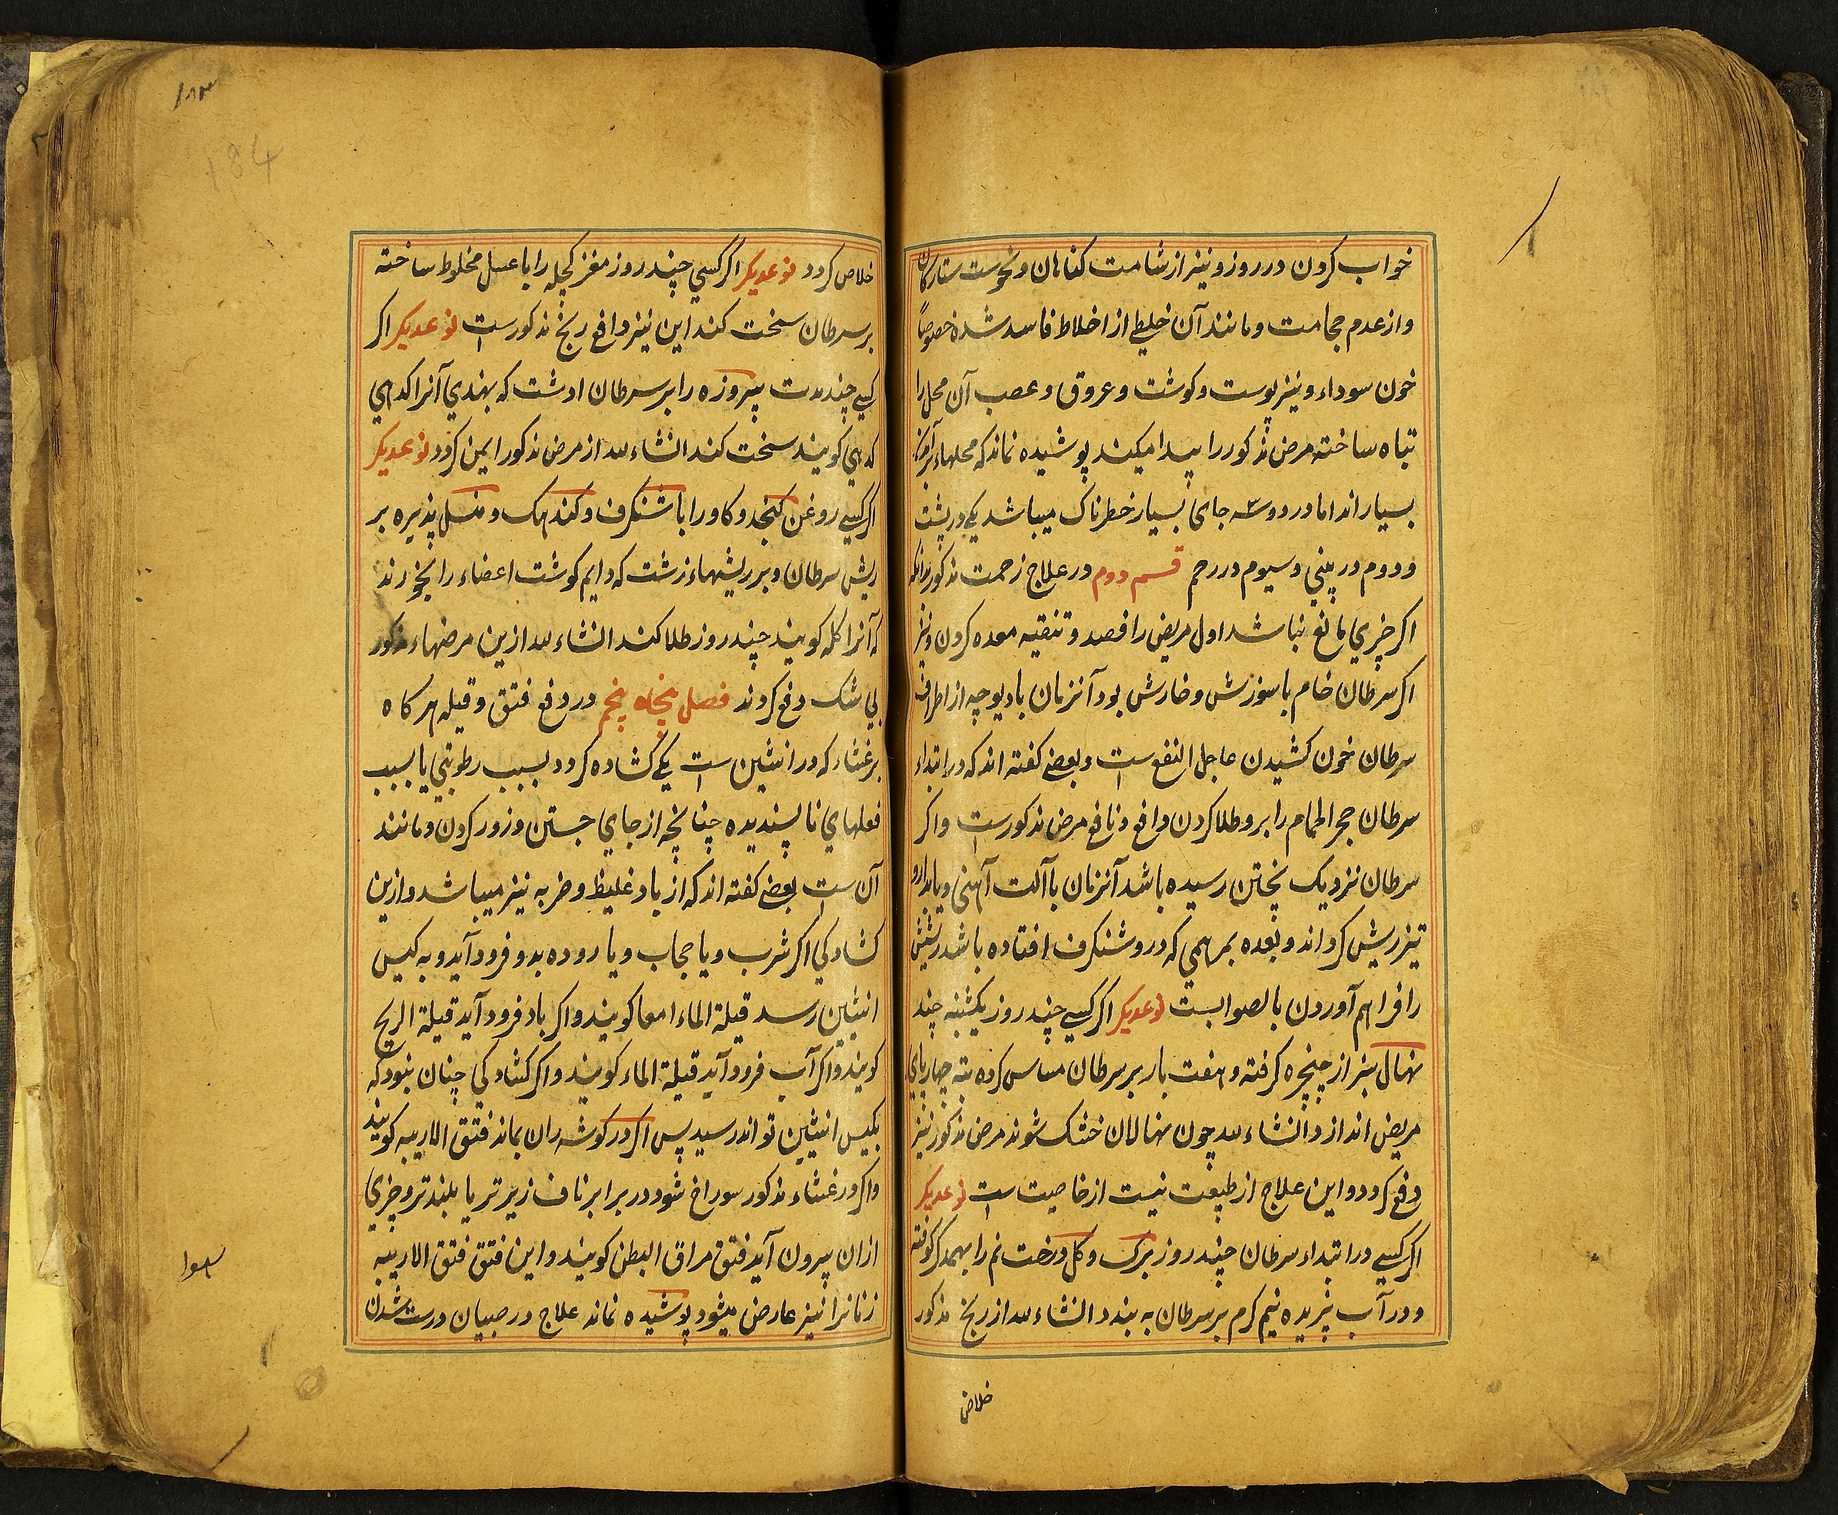 خواب کردن در روز و نیز از شامت کناهان و نحوست ستارکان
و از عدم حجامت و مانند آن خلیطے از اخلاط فاسد شده خصوصاً
خون سوداء و نیز پوست و کوشت و عروق و عصب آن محل را
تباه ساخته مرض مذکور را پیدا میکند پوشیده نماند که محلهاء
بسیار اند اما در دو سه جای بسیار خطرناک میباشد یکے در پشت
و دوم در بینی و سیوم در رحم قسم دوم در علاج زحمت مذکور بدانکه
اکر چیزی مانع نباشد اول مریض را فصد و تنقیه معده کردن و نیز
اکر سرطان خام با سوزش و خارش بود آنزمان با دیوچه از اطراف
سرطان خون کشیدن عاجل النفع است و بعضے کفته اند که در ابتداء
سرطان حجر الحمام را برو طلا کردن دافع و نافع مرض مذکور است و اکر
سرطان نزدیک پختن رسیده باشد آنزمان با آلت آهنی و یا بدارو
تیز ریش کرداند و بعده بمرهمی که درو شنکرف افتاده باشد ریشش
را فراهم آوردن بالصوابست نوعدیکر اکر کسے چند روز یکشنبه چند
نهال سبز از چنچره کرفته و هفت بار بر سرطان مساس کرده ته چهارپای
مریض اندازد انشاءلله چون نهالان خشک شوند مرض مذکور نیز
دفع کردد و این علاج از طبیعت نیست از خاصیت است نوعدیکر
اکر کسے در ابتداء سرطان چند روز برک و کل درخت نم را بهمدکر کوفته
و در آب پزیده نیم کرم بر سرطان به بندد انشاءلله از رنج مذکور
خلاص
خلاص کردد نوعدیکر اکر کسی چند روز مغز کچله را با عسل مخلوط ساخته
بر سرطان سخت کند این نیز دافع رنج مذکور است نوعدیکر اکر
کسے چند مدت پیروزه را بر سرطان ادشت که بهندی آنرا کدهی
کدهی کویند سخت کند انشاءلله از مرض مذکور ایمن کردد نوعدیکر
اکر کسے روغن کنجد و کاو را با شنکرف و کندهک و منسل پذیره بر
ریش سرطان و بر ریشهاء زشت که دایم کوشت اعضاء را بخورند
که آنرا کله کویند چند روز طلا کند انشاءلله ازین مرضهاء مذکور
بی شک دفع کردند فصل پنجاه پنجم در دفع فتق و قیله هرکاه
بر غشاء که در انثیین است یکے کشاده کردد بسبب رطوبتی یا بسبب
فعلهای ناپسندیده چنانچه از جای جستن و زور کردن و مانند
آن است بعضے کفته اند که از باد غلیظ و ضربه نیز میباشد و ازین
کشادکی اکر ثرب و یا حجاب و یا روده بدو فرود آید و به کیس
انثیین رسد قیلة الماء امعا کویند و اکر باد فرود آید قیلة الریح
کویند و اکر آب فرود آید قیلة الماء کویند و اکر کشادکی چنان بنود که
بکیس انثیین تواند رسید پس اکر در کوشه ران بماند فتق الاربیه کویند
و اکر در غشاء مذکور سوراخ شود در برابر ناف زیرتر یا بلندتر و چیزی
ازان بیرون آید فتق مراق البطن کویند و این فتق فتق الاربیه
زنانرا نیز عارض میشود پوشیده نماند علاج در صبیان درست شدن
184